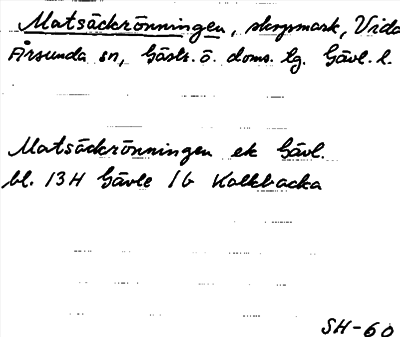 Matsäckrönningen, skogsmark, Vida
Årsunda sn, Gästr. ö. doms. lg. Gävl. l.
Matsäckrönningen ek Gävl.
bl. 13H Gävle 1b Kalkbacka
SH-60